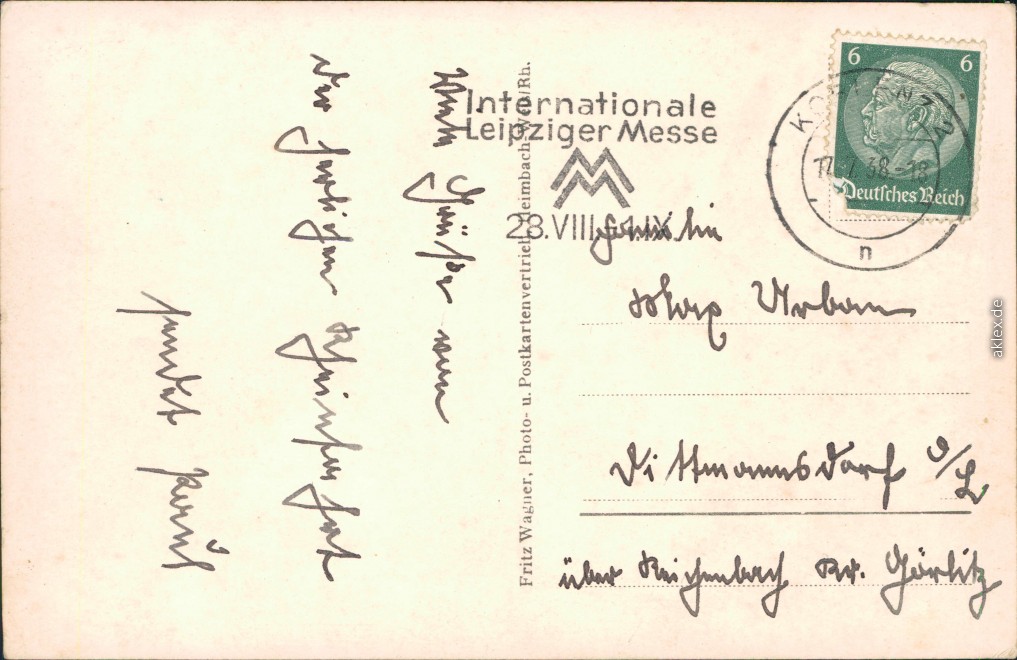 Viele Grüße von
der herrlichen Rheinfahrt
sendet Paul
Fritz Wagner, Photo- u. Postkartenvertrieb, Heimbach-Weis/Rh.
Internationale
Leipziger Messe
MM
28.VIII.-1.IX.
KOBLENZ 2
17.7.38.-18
n
6 6
Deutsches Reich
Familie
Max Urban
Dittmannsdorf O/L
über Reichenbach Kr. Görlitz
aklex.de